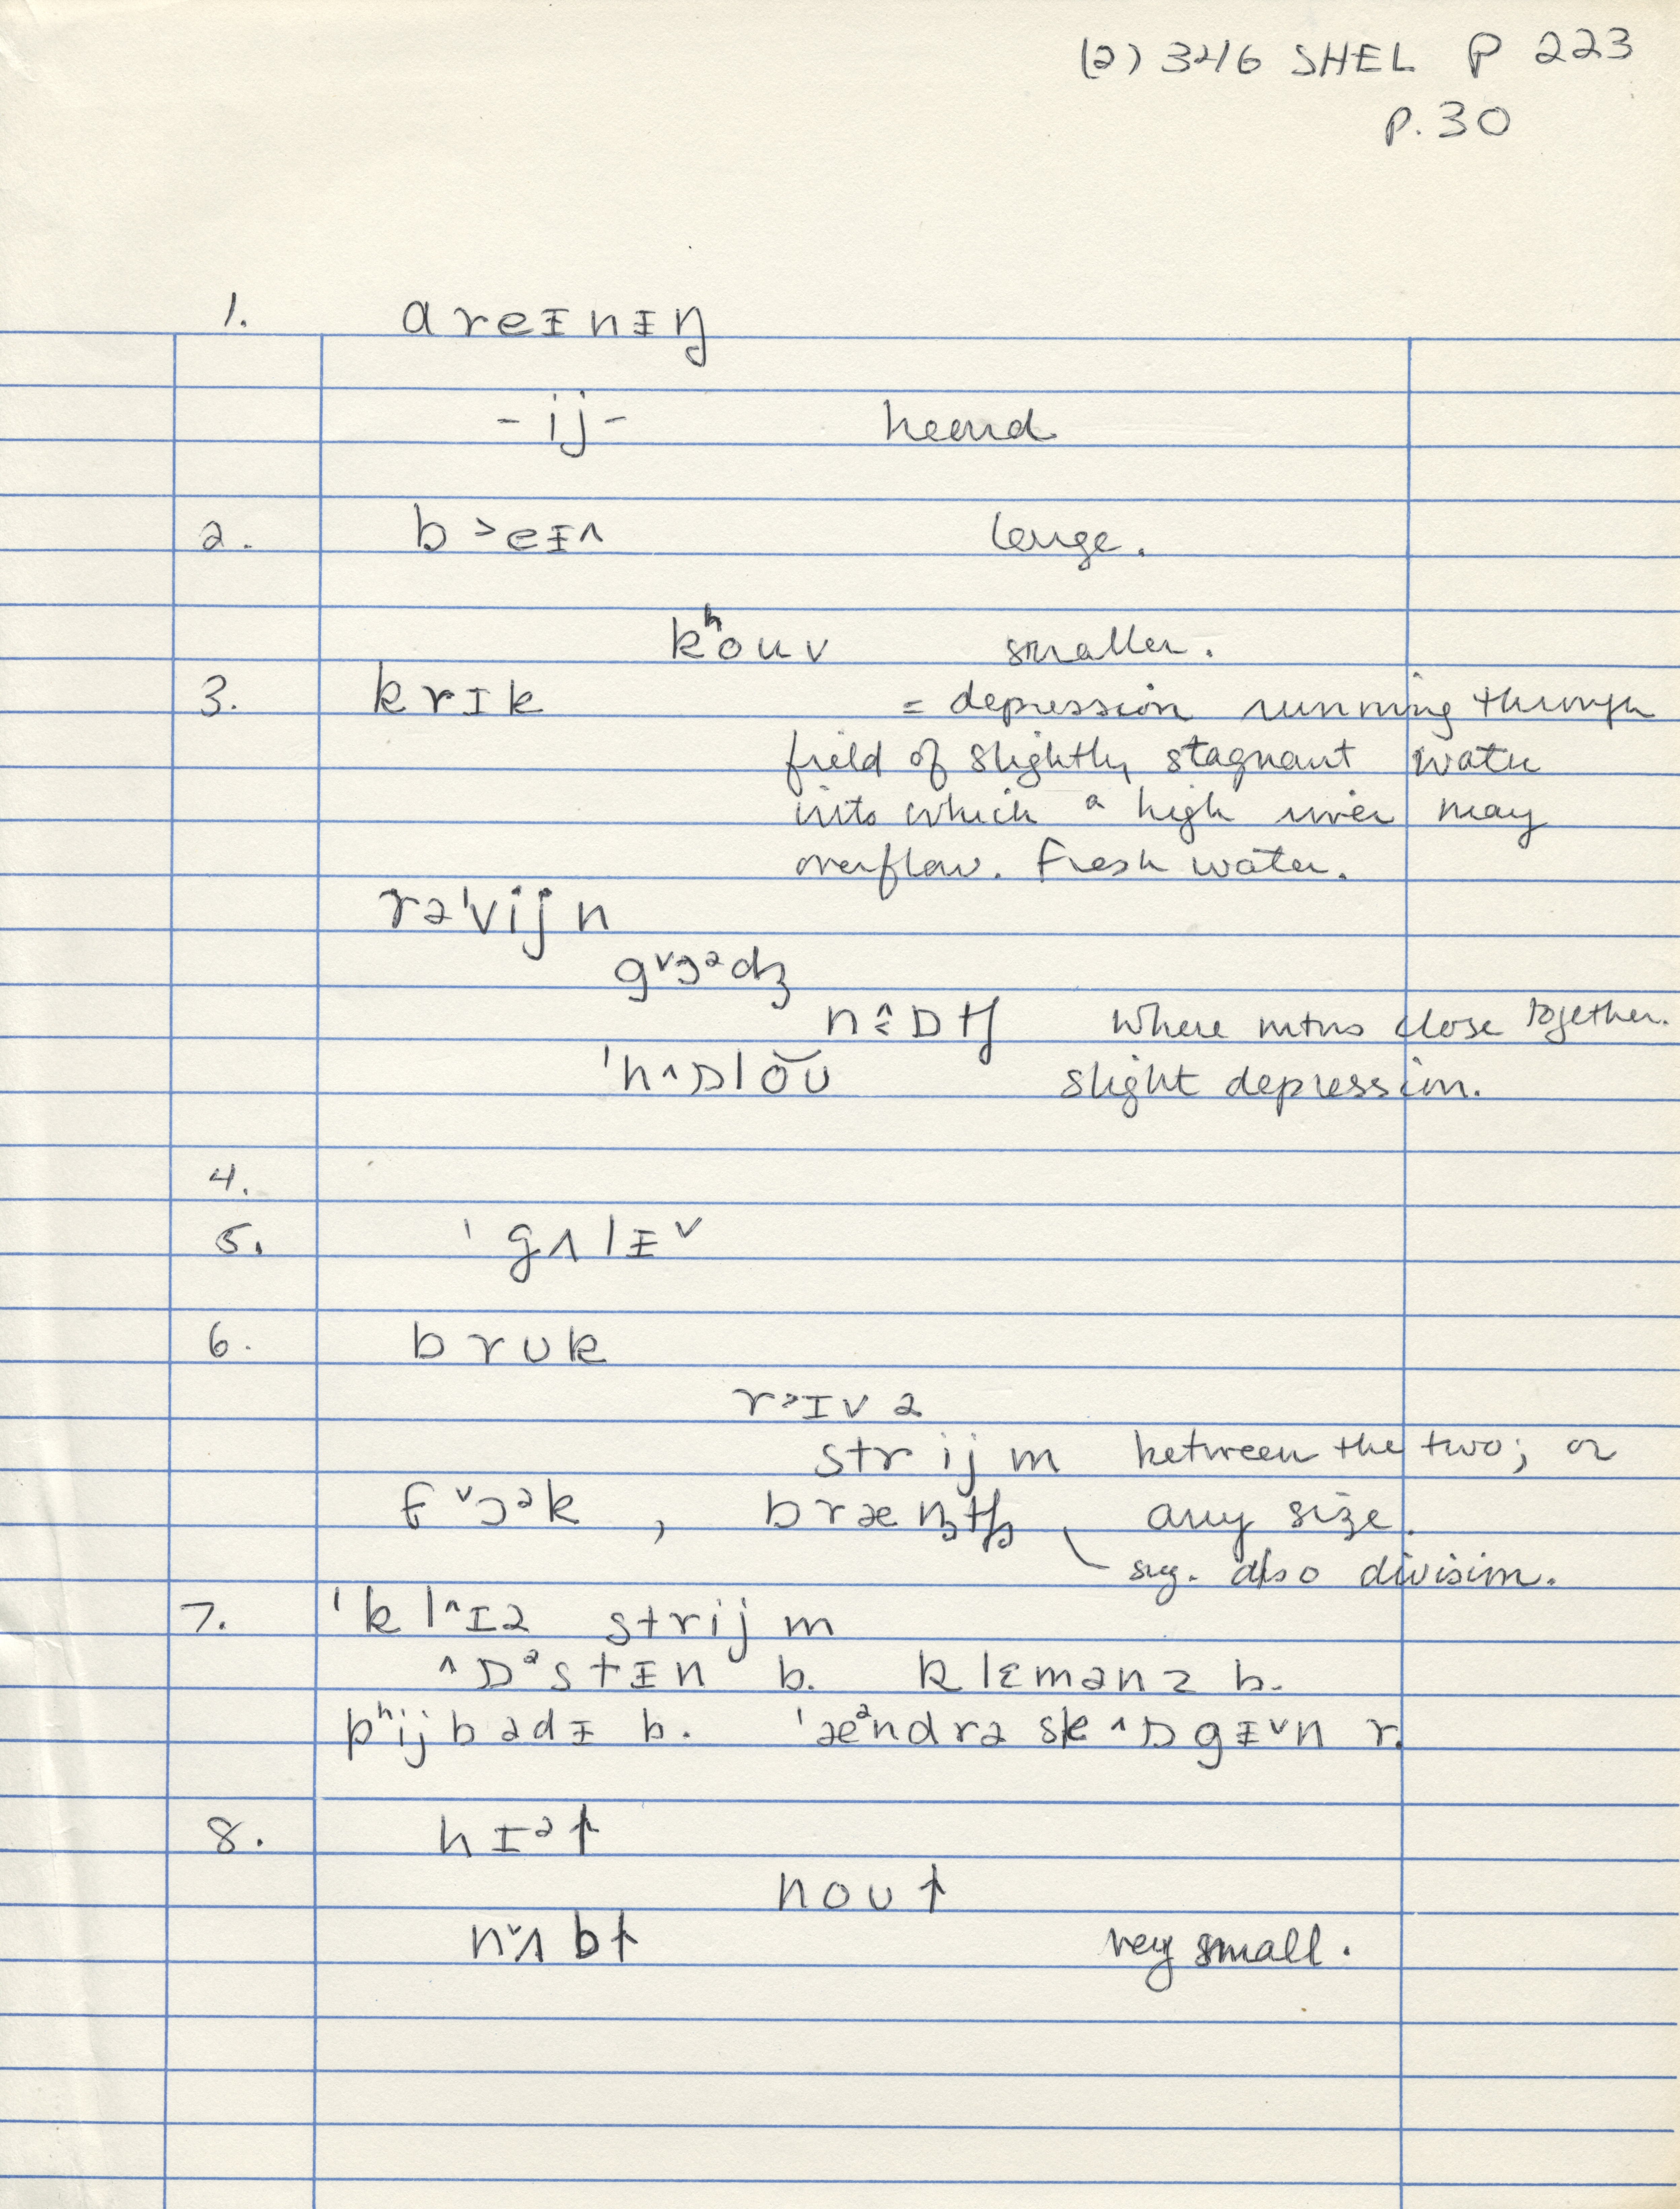 (2) 346 SHEL P 223
P. 30
1. ɑreᵻnᵻŋ
-ij- heard
2. b˃eᵻ^ large.
kʰouv smaller.
3. krɪk = depression running through
field of slightly stagnant water
into which a high river may
overflow. Fresh water.
rə'vijn
g˅ɔᵊdʒ
nɒtʃ where mtns close together.
'h^ɒlŏʊ slight depression.
4.
5. 'gʌlᵻ˅
6. brʊk
r˃ɪvə
strijm between the two; or
f˅ɔᵊk, brænʧ any size.
sig. also division.
7. 'kl^ɪə strijm
^ɒᵊstᵻn b. klɛmənz b.
pʰijbədᵻ b. 'æᵊndrəsk^ɒgᵻ˅n r.
8. hɪᵊƚ
noʊƚ
n˅ʌbƚ very small.